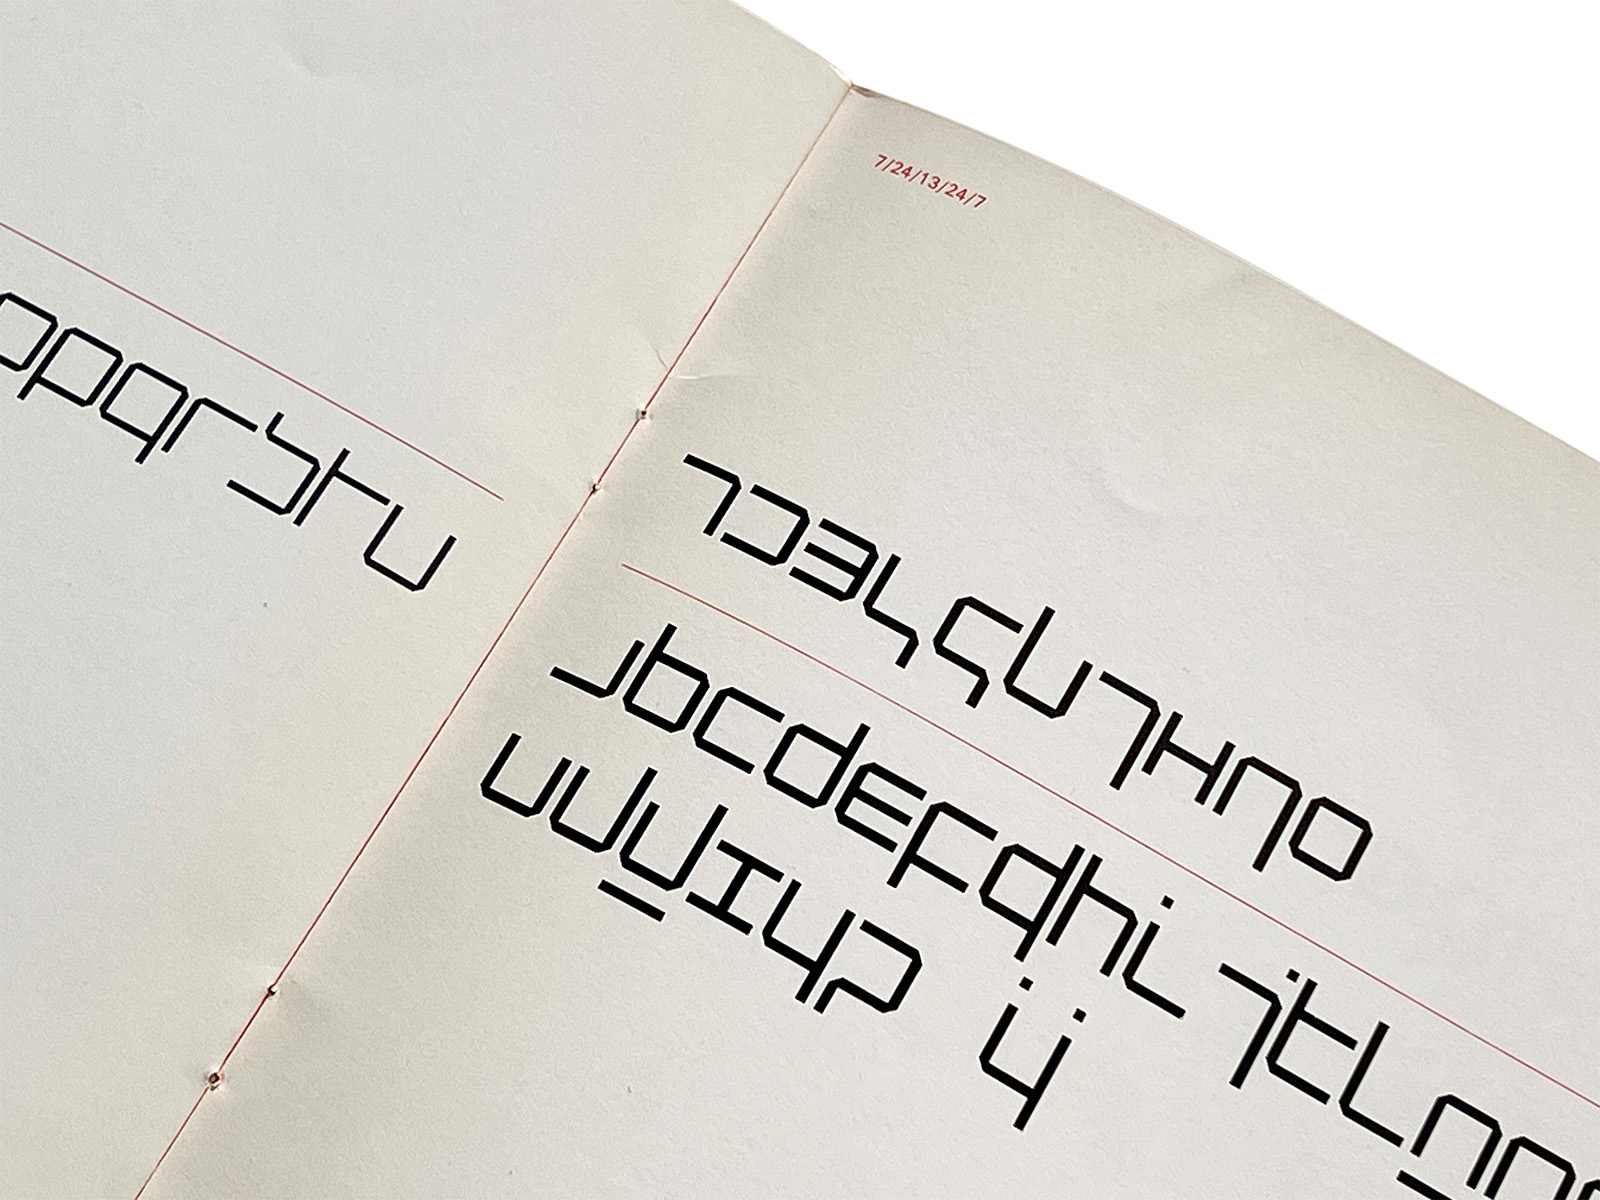 opqrstu
7/24/13/24/7
1234567890
abcdefghijklmn
uvwxyz
ij